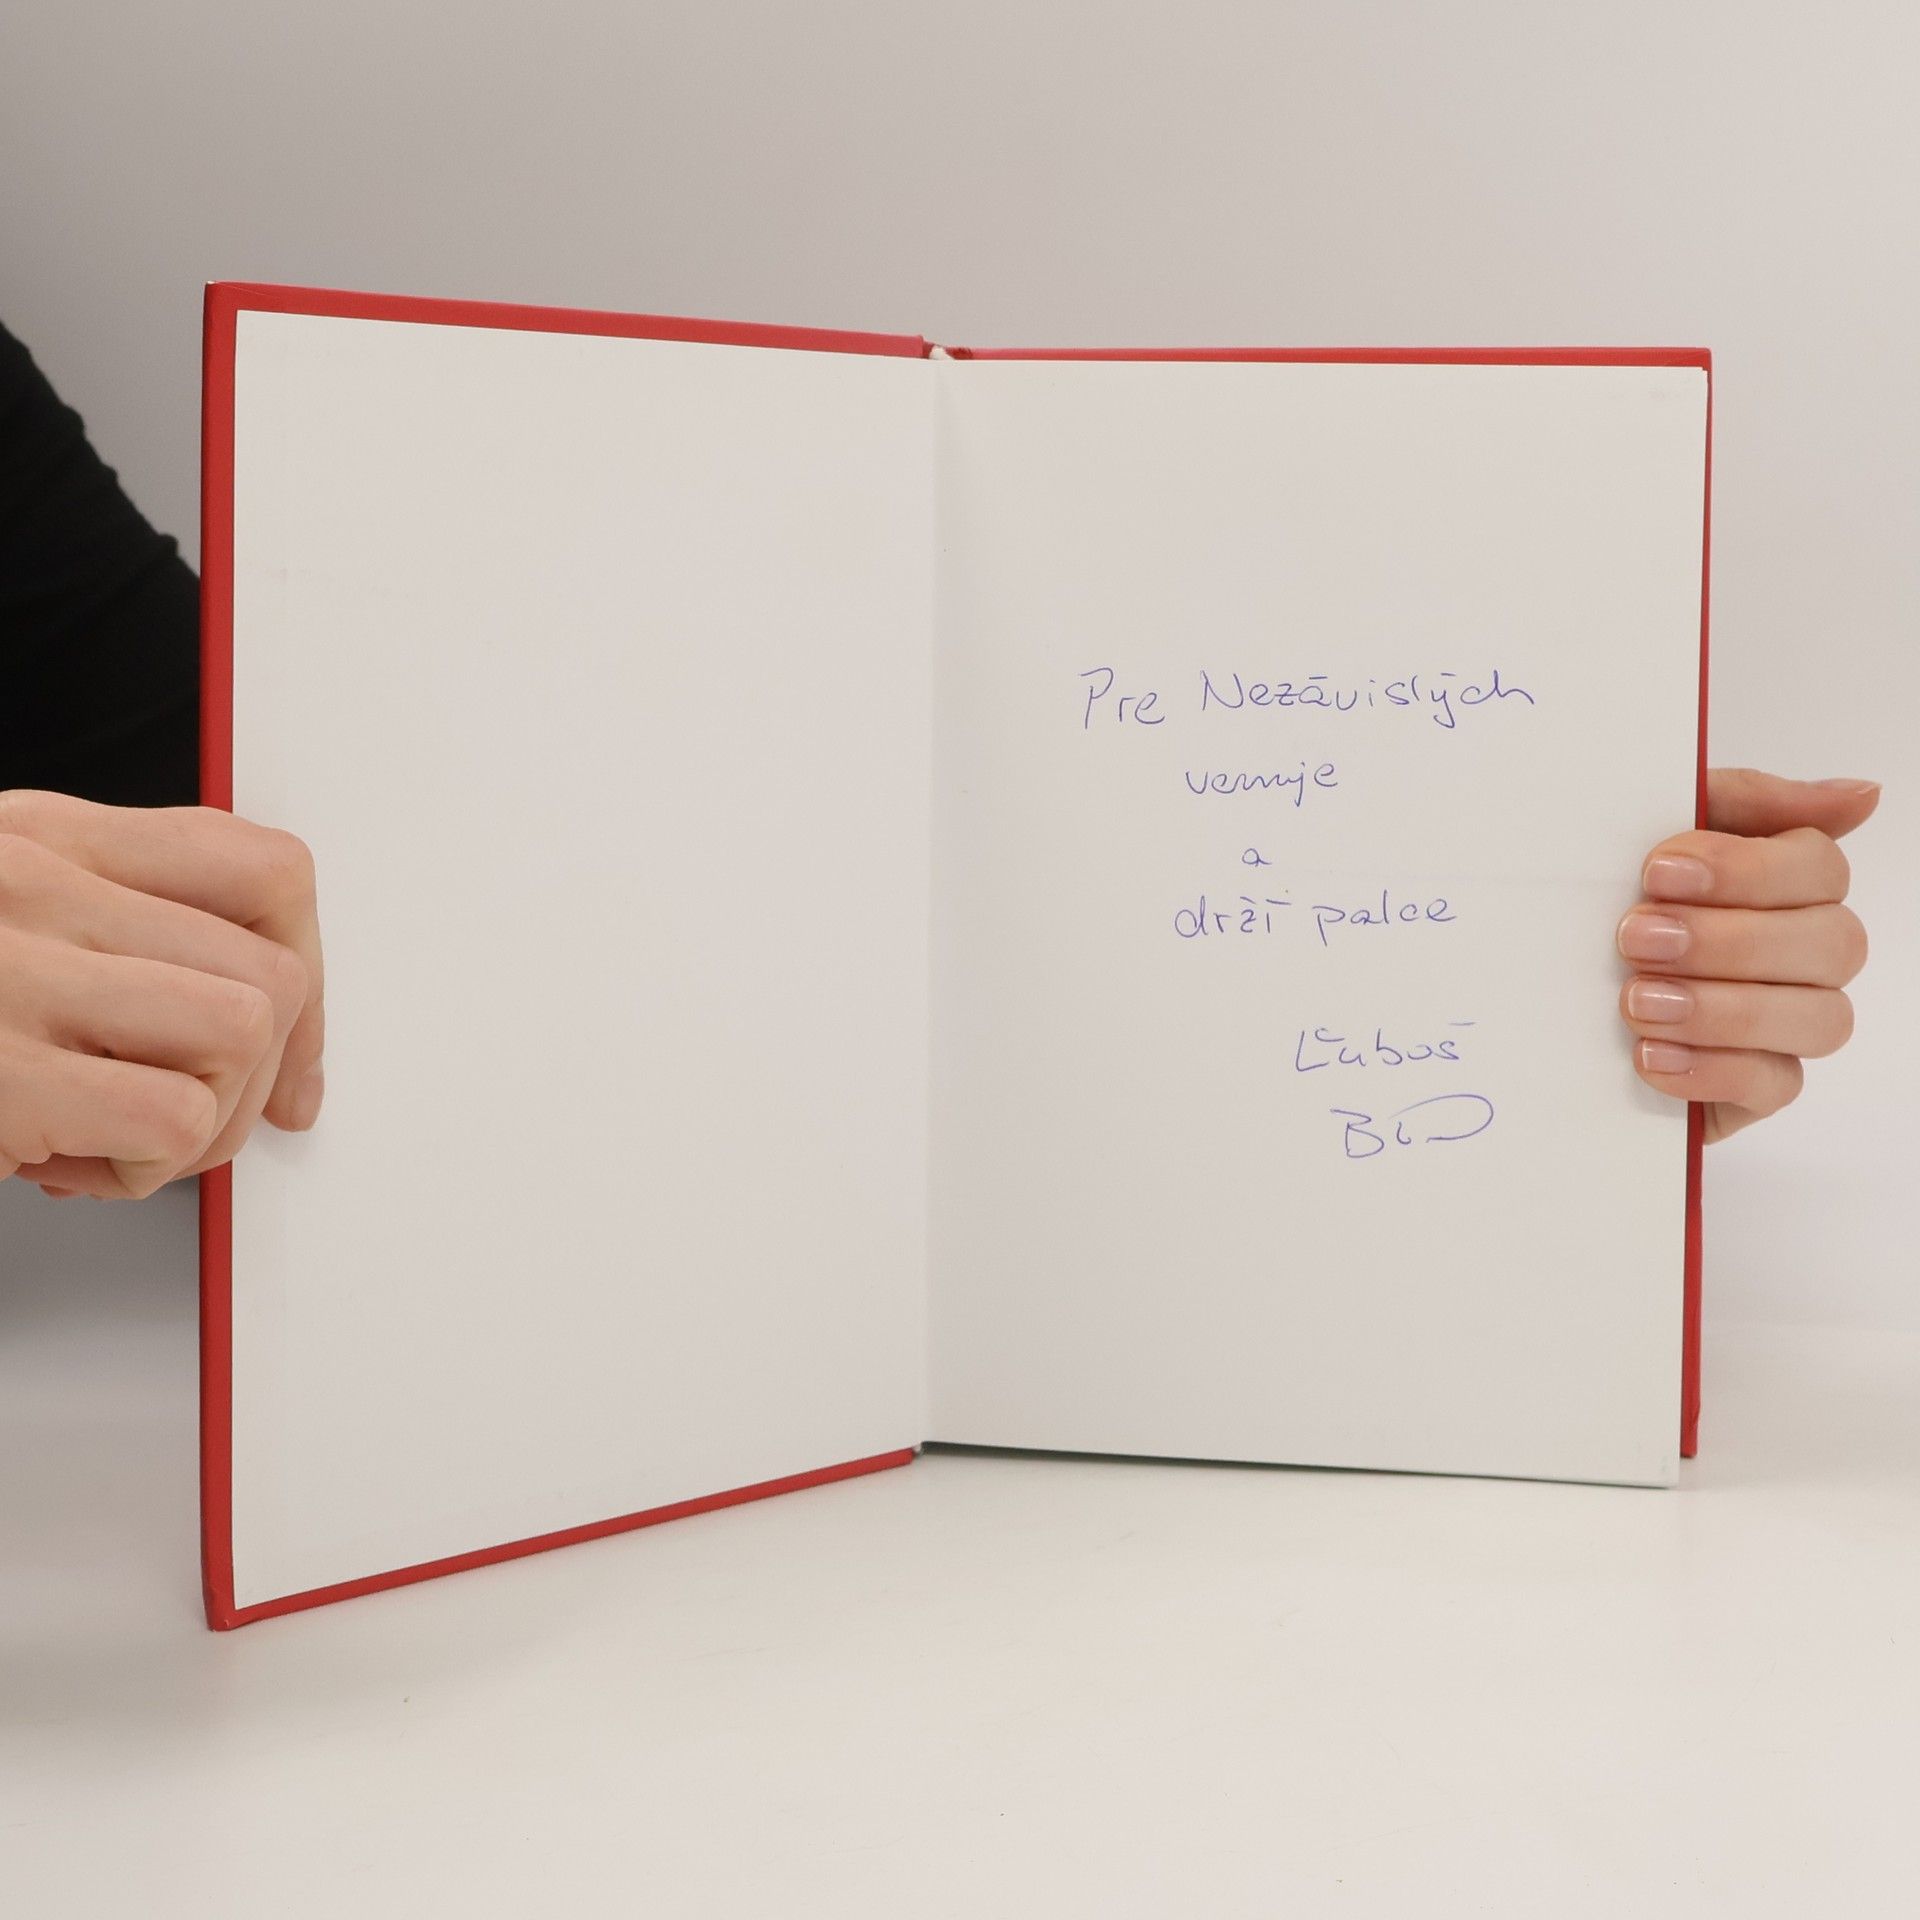 Pre Nezávislých
venuje
a
drží palce
Ľuboš